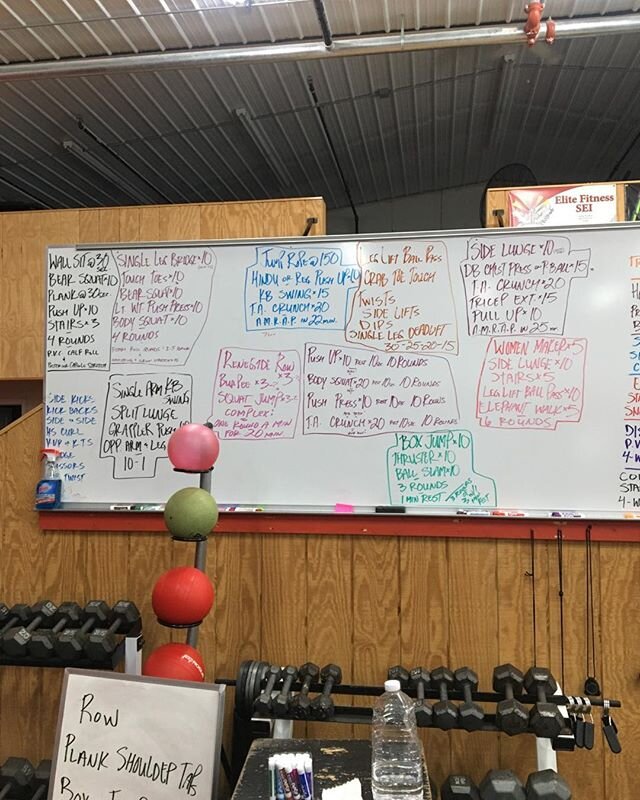 Elite Fitness
SEI
WALL SIT @ 30
BEAR SQUAT·10
PLANK @ 30
PUSH UP·10
STAIRS × 3
4 ROUNDS
SINGLE LEG BRIDGE × 10
TOUCH TOES × 10
BEAR SQUAT × 10
LT WT PUSH PRESS × 10
BODY SQUAT × 10
4 ROUNDS
JUMP ROPE @ 150
HINDU OR REG PUSH UP × 10
KB SWING × 15
T.A. CRUNCH × 20
A.M.R.A.P. IN 22 MIN.
LEG LIFT BALL PASS
CRAB TOE TOUCH
TWISTS
SIDE LIFTS
DIPS
SINGLE LEG DEADLIFT
30-25-20-15
SIDE LUNGE × 10
DB CHST PRESS
BALL × 15
T.A. CRUNCH × 20
TRICEP EXT. × 15
PULL UP × 10
A.M.R.A.P. IN 25
SIDE KICKS
KICK BACKS
SIDE
SIDE
HS CURL
TWIST
SINGLE ARM KB
SWING
SPLIT LUNGE
GRAPPLER PUSH
OPP ARM & LEG
10-1
RENEGADE ROW
BURPEE × 3
SQUAT JUMP × 3
COMPLEX:
ONE ROUND A MIN
FOR 20 MIN
PUSH UP × 10
10 ROUNDS
BODY SQUAT × 20
10 ROUNDS
PUSH PRESS × 10
10 ROUNDS
T.A. CRUNCH × 20
10 ROUNDS
WOMEN MAKER × 5
SIDE LUNGE × 10
STAIRS × 5
LEG LIFT BALL PASS × 10
ELEPHANT WALK × 5
6 ROUNDS
BOX JUMP × 10
THRUSTER × 10
BALL SLAM × 10
3 ROUNDS
1 MIN REST
ROW
PLANK SHOULDER TAP
BOX